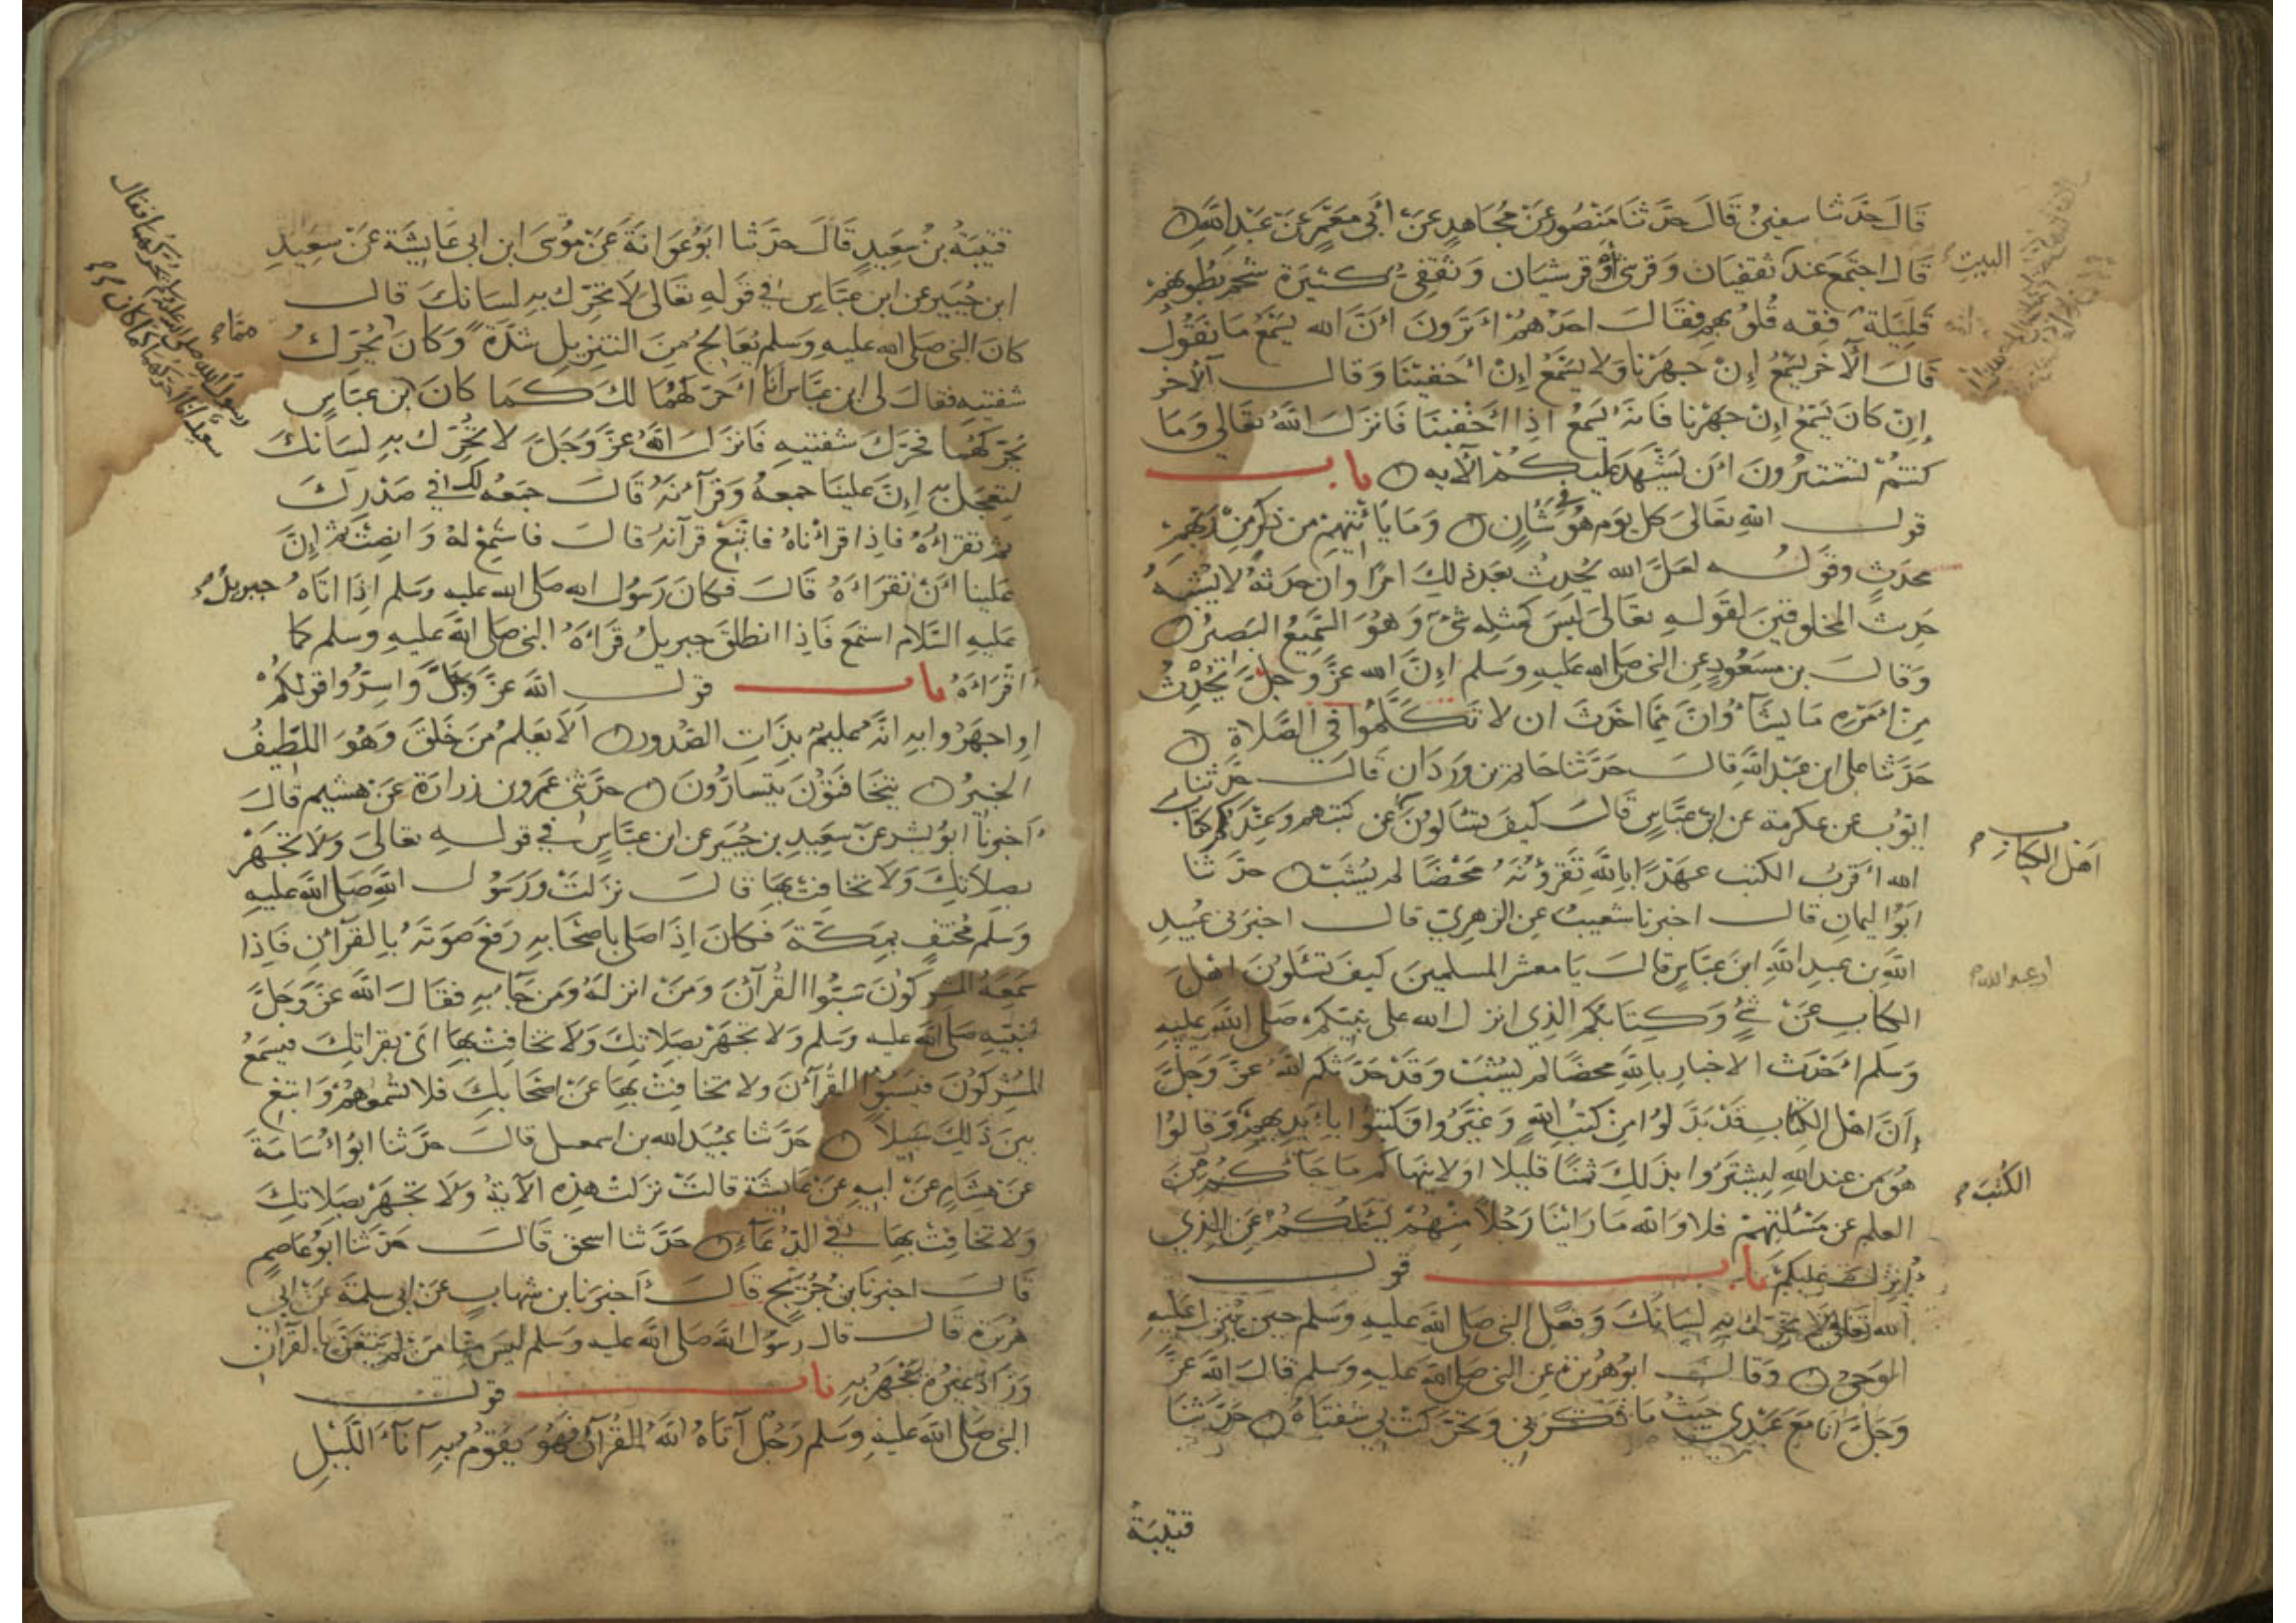 قَالَ حَدَّثَنَا سفينُ قَالَ حَدَّثَنَا مَنْصُور عَنْ مُجَاهدٍ عَنْ أبي مَعْمَرٍ عَنْ عَبْدِ اللَّهِ
قَالَ اجتَمَعَ عندَ ثقفيَان وَقرشي أَوْ قرشيَان وَثقَفي كثيرَة شحم بُطُونهمْ
البيت
قَلِيلَة فِقه قُلُوبهم فقَالَ احَدُهُمْ أَتَرَونَ أنَّ الله يَسْمَعُ مَا نَقُولُ
قَالَ الآخر يَسْمَعُ إِنْ جَهَرْنَا وَلا يَسْمَعُ إِنْ أخفَيْنَا وَقالَ الآخر
إِنْ كَانَ يَسْمَعُ إِنْ جَهَرْنا فَانهُ يَسمَعُ اذا أَخْفَيْنَا فَانزَلَ اللهُ تعَالي وَمَا
كنتُمْ تَسْتَتِرُونَ أَنْ يَشْهَدَ عَليكُمْ الآيه باب
قول الله تعَالى كل يَوم هُوَ في شَأن وَمَا يَأتيهِمْ من ذكر مِنْ رَبّهِمْ
محدَثٍ وقَولُه لعَلَّ الله يُحدِثُ بَعدَ ذلِكَ امرًا وان حَدَثهُ لا يُشبهُ
حَدَث المخلوقينَ لقَولهِ تعَالى لَيسَ كمثلِه شئ وَهوَ السَّمِيعُ البَصِيرُ
وَقالَ بن مسعُودٍ عن النبي صَلى الله عليهِ وَسَلم إِنَّ الله عزَّ وجلَّ يُحْدِثُ
مِن أَمْرِهِ مَا يَشَاءُ وَانَّ مِمَّا احْدَثَ ان لا تَكَلَّمُوا في الصَّلاة
حَدَّثنا على ابن عَبْد اللهِ قالَ حَدَّثنا حَاتم بن وَردَان قَالَ حَدَّثنا
ايّوب عن عكرمة عن ابن عَبَّاسٍ قَالَ كيفَ تسْأَلونَ عن كتبهم وَعِنْدَكُم كتاب
أهل الكتاب
الله أقرَبُ الكتب عهدًا باللهِ تَقرؤنَهُ محْضًا لم يُشَبْ حدثَنا
ابوُا ليمَانِ قالَ اخبرنا شعيبُ عن الزهري قالَ اخبرَني عُبيد
اللهِ بن عَبد اللهِ ابنَ عبَّاسٍ قالَ يَا معشر المسلمين كيفَ تسْئَلُونَ اهلَ
الكاب عَنْ شئ وَكِتَابكُم الذِي انزل الله على نبيّكم صَلى اللهُ عليهِ
وَسَلم أَحْدَث الاخبار باللهِ محضًا لم يُشَبْ وَقَدْ حَدَّثكم اللهُ عَزَّ وَجَلَّ
أَنَّ اهْلَ الكِتابِ قدْ بَدَّلُوا مِنْ كتب اللهِ وَغيَّروا فكتبوا بأيديهم وَقالوا
هُوَ من عندِ اللهِ ليشتَرَوا بذَلِكَ ثمنًا قليلا اوَلا ينهاكم مَا جَآءَكُم مِنَ
الكُتب
العلم عن مَسْئلتِهمْ فلا وَالله مَا رَاَيْنَا رَجُلًا مِنْهُمْ يَسْئلكُمْ عَن الذي
أُنزلَ عليكُمْ باب قول
الله تعَالى لا تحَرّك بهِ لِسَانَكَ وَفِعْل النبي صَلى اللهُ عليهِ وَسَلم حين يُنزل عَليهِ
الوَحي وَقالَ ابُو هُريرَة عن النبي صَلى اللهُ عليهِ وَسلم قَالَ اللهُ عَزَّ
وَجَلَّ انَا مَعَ عَبْدِي حَيْثُ مَا ذكَرَني وَتحَرَّكتْ بي شفَتَاهُ حَدثنا
قتيبَةُ
قتيبَةُ بنُ سَعِيدٍ قَالَ حدَّثنا ابُوعَوَانَةَ عَنْ مُوسَى ابن ابي عَايشَة عَنْ سَعِيدِ
ابن جُبَير عن ابن عبَّاسٍ في قَولهِ تعَالى لَا تحَرّك بهِ لِسَانَكَ قالَ
كانَ النبي صَلى اللهُ عليهِ وَسَلم يُعَالجُ مِنَ التنزيل شدَّةً وَكانَ يُحَرّكُ
ممَّا
شفتيهِ فقالَ لى ابن عبَّاس أنا أُحَرّكهُمَا لكَ كمَا كانَ بن عبَّاسٍ
يُحَرّكهُمَا فحَرَّكَ شفتيهِ فَانزَلَ اللهُ عَزَّ وَجَلَّ لا تحَرّك بهِ لسَانكَ
لتعجَلَ بهِ إِنَّ عَلينَا جمعهُ وَقرآنَهُ قَالَ جمَعُه لك في صَدْرِكَ
ثم تقرَأهُ فاذا قرَأْنَاهُ فاتبعْ قرآنهُ قالَ فاستَمِعْ لهُ وَانصِت ثم إِنَّ
عَلينا أَنْ تقرَأهُ قَالَ فكانَ رَسُول الله صَلى الله عليه وَسلم اذا اتَاهُ جبريلُ
عَليهِ السَّلام استَمَعَ فَاذا انطلقَ جبريلُ قرَأهُ النبي صَلى اللهُ عَليهِ وسلم كما
أقرَأهُ باب قول اللهُ عَزَّ وَجَلَّ وَاسِرُّوا قَولكُمْ
اواجهَرُوا بهِ انَّهُ عليمٌ بِذَاتِ الصُّدور ألا يَعلمُ مَنْ خَلقَ وَهُوَ اللطيفُ
الخبيرُ يتخَافَتُونَ يتَسَارُّونَ حدَّثني عَمرو بن زرارَة عَنْ هشيم قَالَ
أخبرنا ابُو بشر عنْ سَعِيدِ بن جُبَير عن ابن عبَّاسٍ في قولهِ تعَالى وَلَا تَجْهَرْ
بصَلَاتِكَ وَلَا تخافِتْ بِهَا قالَ نزلَتْ وَرَسُول اللهِ صَلى الله عَليهِ
وَسلم مُختفٍ بمَكَّةَ فكانَ اذا صَلى باصْحَابهِ رَفعَ صَوتَهُ بالقرآنِ فَاذا
سَمِعَهُ المشركُونَ سَبُّوا القُرآنَ وَمَنْ انزلهُ وَمَنْ جَآءَ بهِ فقالَ اللهُ عَزَّ وَجَلَّ
لنبيّهِ صَلى اللهُ عليه وَسلم وَلا تَجْهَرْ بصَلَاتِكَ وَلَا تخافِتْ بها اىْ بقراتِكَ فيَسْمَعُ
المشركُونَ فيَسُبُّوا القُرآنَ وَلا تخافِتْ بِهَا عَنْ اصْحَابكَ فلا تسمعُهُمْ وَابتغ
بَينَ ذَلِكَ سَبيلاً حَدَّثنا عُبَيْدُ الله بن اسمعيل قالَ حدَّثنا ابُو اُسَامَةَ
عَنْ هِشَامٍ عَنْ ابيهِ عَنْ عَايشَة قالتْ نزلتْ هذِهِ الآيَةُ وَلَا تَجْهَرْ بصَلاتِكَ
وَلا تخافِتْ بِهَا في الدُّعَآءِ حَدَّثنا اسحق قَالَ حَدَّثنا ابُو عَاصِمٍ
قَالَ اخبرنَا بن جُرَيج قَالَ أخبرَنا بن شهابٍ عَنْ ابى سلمَة عَنْ ابي
هُرَيرَة قَالَ قالَ رَسُول اللهِ صَلى اللهُ عليه وَسلم لَيسَ مِنَّا مَنْ لمْ يَتَغَنَّ بالقرآن
وَزَادَ غيرُهُ يَجْهَرُ بهِ باب قول
النبي صَلى اللهُ عَليهِ وَسَلم رَجُلٌ آتَاهُ اللهُ القُرآنَ فهُوَ يَقُومُ بهِ آنَآءَ اللَّيْلِ